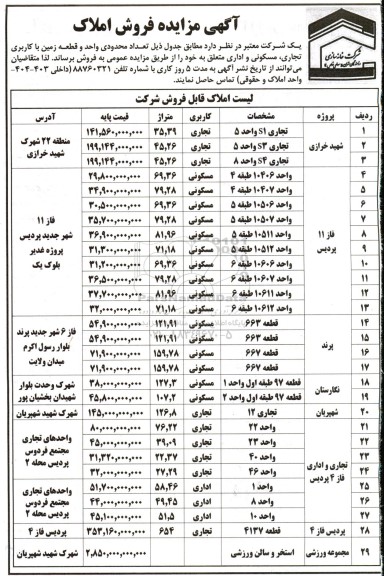 آگهی مزایده فروش املاک
شرکت خانه‌سازی
یک شرکت معتبر در نظر دارد مطابق جدول ذیل تعداد محدودی واحد و قطعه زمین با کاربری
تجاری، مسکونی و اداری متعلق به خود را از طریق مزایده عمومی به فروش برساند. لذا متقاضیان
می‌توانند از تاریخ نشر آگهی به مدت ۵ روز کاری با شماره تلفن ۸۸۷۶۰۳۲۱ (داخلی ۴۰۳-۴۰۴
واحد املاک و حقوقی) تماس حاصل نمایند.
لیست املاک قابل فروش شرکت
ردیف پروژه مشخصات کاربری متراژ قیمت پایه آدرس
۱ تجاری S1 واحد ۵ تجاری ۳۵,۳۹ ۱۴۱,۵۶۰,۰۰۰,۰۰۰
۲ شهید خرازی تجاری S3 واحد ۵ تجاری ۴۵,۲۶ ۱۹۹,۱۴۴,۰۰۰,۰۰۰ منطقه ۲۲ شهرک شهید خرازی
۳ تجاری S4 واحد ۸ تجاری ۴۵,۲۶ ۱۹۹,۱۴۴,۰۰۰,۰۰۰
۴ واحد ۱۰۴۰۶ طبقه ۴ مسکونی ۶۹,۳۶ ۲۹,۸۰۰,۰۰۰,۰۰۰
۵ واحد ۱۰۴۰۷ طبقه ۴ مسکونی ۷۹,۲۸ ۳۴,۹۰۰,۰۰۰,۰۰۰
۶ واحد ۱۰۵۰۶ طبقه ۵ مسکونی ۶۹,۳۶ ۳۰,۵۰۰,۰۰۰,۰۰۰
۷ واحد ۱۰۵۰۷ طبقه ۵ مسکونی ۷۹,۲۸ ۳۵,۷۰۰,۰۰۰,۰۰۰
۸ فاز ۱۱ پردیس واحد ۱۰۵۱۱ طبقه ۵ مسکونی ۸۱,۹۶ ۳۶,۹۰۰,۰۰۰,۰۰۰ فاز ۱۱ شهر جدید پردیس پروژه غدیر بلوک یک
۹ واحد ۱۰۵۱۲ طبقه ۵ مسکونی ۷۱,۱۸ ۳۱,۳۰۰,۰۰۰,۰۰۰
۱۰ واحد ۱۰۶۰۶ طبقه ۶ مسکونی ۶۹,۳۶ ۳۱,۲۰۰,۰۰۰,۰۰۰
۱۱ واحد ۱۰۶۰۷ طبقه ۶ مسکونی ۷۹,۲۸ ۳۶,۵۰۰,۰۰۰,۰۰۰
۱۲ واحد ۱۰۶۱۱ طبقه ۶ مسکونی ۸۱,۹۶ ۳۷,۷۰۰,۰۰۰,۰۰۰
۱۳ واحد ۱۰۶۱۲ طبقه ۶ مسکونی ۷۱,۱۸ ۳۲,۰۰۰,۰۰۰,۰۰۰
۱۴ قطعه ۶۶۳ مسکونی ۱۲۱,۹۱ ۵۴,۹۰۰,۰۰۰,۰۰۰
۱۵ پرند قطعه ۶۶۳ مسکونی ۱۲۱,۹۱ ۵۴,۹۰۰,۰۰۰,۰۰۰ فاز ۶ شهر جدید پرند بلوار رسول اکرم میدان ولایت
۱۶ قطعه ۶۶۷ مسکونی ۱۵۹,۷۸ ۷۱,۹۰۰,۰۰۰,۰۰۰
۱۷ قطعه ۶۶۷ مسکونی ۱۵۹,۷۸ ۷۱,۹۰۰,۰۰۰,۰۰۰
۱۸ نگارستان قطعه ۹۷ طبقه اول واحد ۱ مسکونی ۱۲۷,۳ ۳۸,۰۰۰,۰۰۰,۰۰۰ شهرک وحدت بلوار شهیدان بخشیان پور
۱۹ قطعه ۹۷ طبقه اول واحد ۲ مسکونی ۱۰۷,۲ ۴۵,۸۰۰,۰۰۰,۰۰۰
۲۰ شهریان تجاری ۱۲ تجاری ۱۲۶,۸ ۱۴۵,۰۰۰,۰۰۰,۰۰۰ شهرک شهید شهریان
۲۱ واحد ۲۲ تجاری ۷۶,۲۲ ۸۰,۰۰۰,۰۰۰,۰۰۰
۲۲ واحد ۲۳ تجاری ۳۹,۰۹ ۴۵,۰۰۰,۰۰۰,۰۰۰ واحدهای تجاری مجتمع فردوس پردیس محله ۲
۲۳ تجاری و اداری فاز ۴ پردیس واحد ۴۰ تجاری ۲۲,۳۷ ۳۱,۳۲۰,۰۰۰,۰۰۰
۲۴ واحد ۴۶ تجاری ۲۷,۲۹ ۳۲,۰۰۰,۰۰۰,۰۰۰
۲۵ واحد ۱ اداری ۵۸,۴۶ ۵۱,۷۰۰,۰۰۰,۰۰۰ واحدهای تجاری مجتمع فردوس پردیس محله ۲
۲۶ واحد ۸ اداری ۴۹,۴۵ ۴۴,۰۰۰,۰۰۰,۰۰۰
۲۷ واحد ۱۰ اداری ۵۱,۵ ۴۵,۱۰۰,۰۰۰,۰۰۰
۲۸ پردیس فاز ۴ قطعه ۴۱۳۷ تجاری ۶۵۴ ۳۵۳,۱۶۰,۰۰۰,۰۰۰ پردیس فاز ۴
۲۹ مجموعه ورزشی استخر و سالن ورزشی ۲,۸۵۰,۰۰۰,۰۰۰ شهرک شهید شهریان